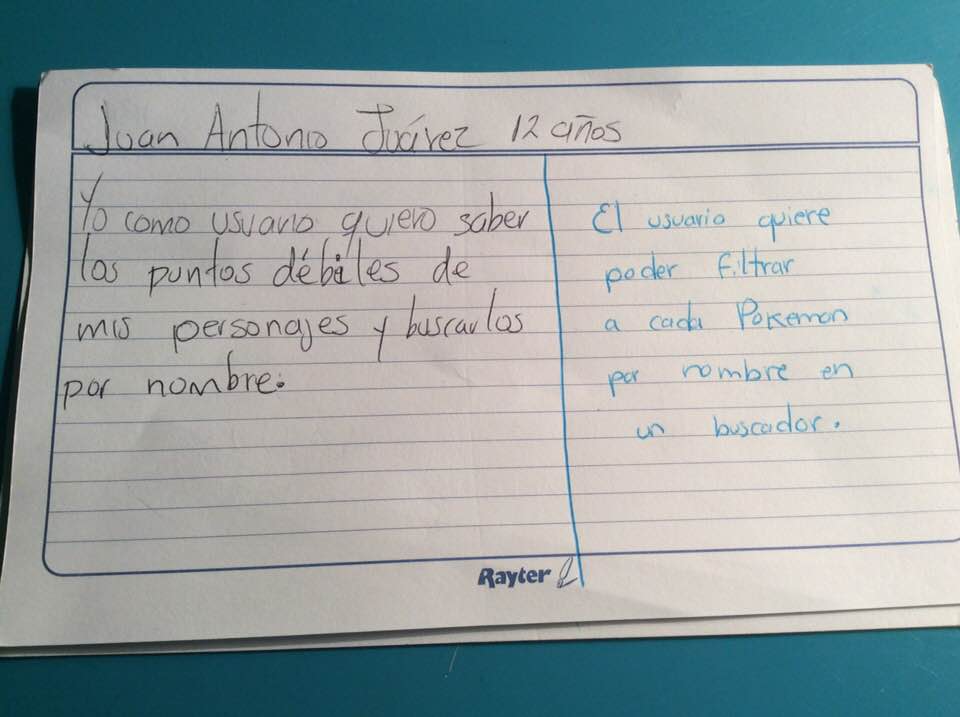 Juan Antonio Juárez 12 años
Yo como usuario quiero saber
los puntos débiles de
mis personajes y buscarlos
por nombre.
El usuario quiere
poder filtrar
a cada Pokemon
por nombre en
un buscador.
Rayter